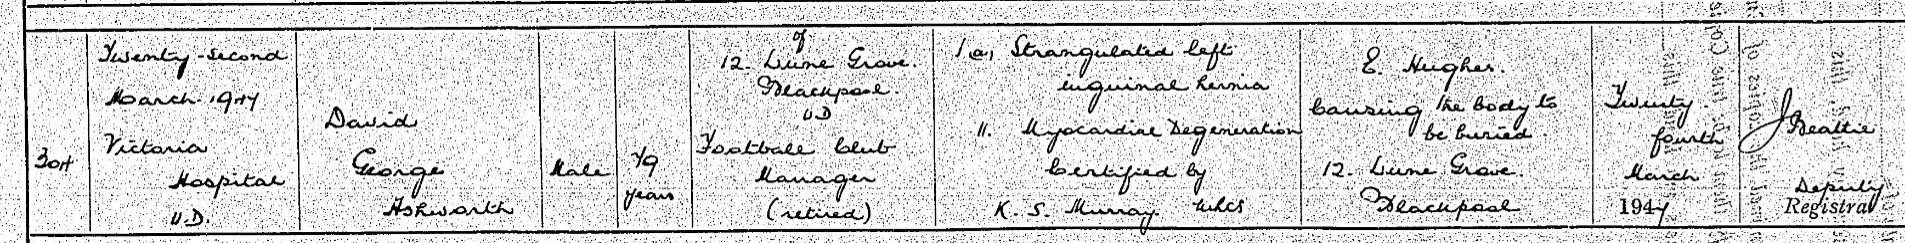 304
Twenty-second
March 1947
Victoria
Hospital
U.D.
David
George
Ashworth
Male
79
years
of
12. Lune Grove.
Blackpool.
U D
Football Club
Manager
(retired)
1 (a) Strangulated left
inguinal hernia
11. Myocardine Degeneration
Certified by
K. S. Murray. MRCS
E. Hughes.
Causing the body to
be buried.
12. Lune Grove.
Blackpool
Twenty.
fourth
March
1947
J Beattie
Deputy
Registrar